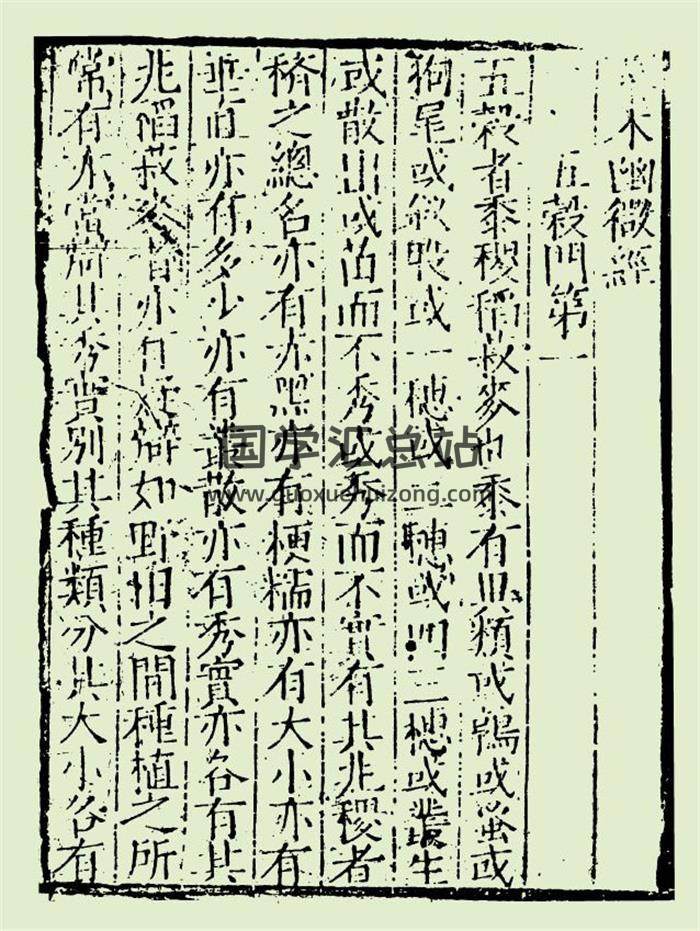 木幽微經
五穀門第一
五穀者黍稷稻菽麥也黍有類或鴞或蚤或
狗尾或或一穗或二穗或三穗或叢生
或散出或苗而不秀或秀而不實有其兆稷者
穄之總名亦有亦黑亦有梗糯亦有大小亦有
垂直亦有多少亦有叢散亦有秀實亦各有其
兆稻菽麥皆亦有如野之間種植之所
常有亦當其秀實別其種類分其大小各有
国学汇总站
www.guoxuehuizong.com